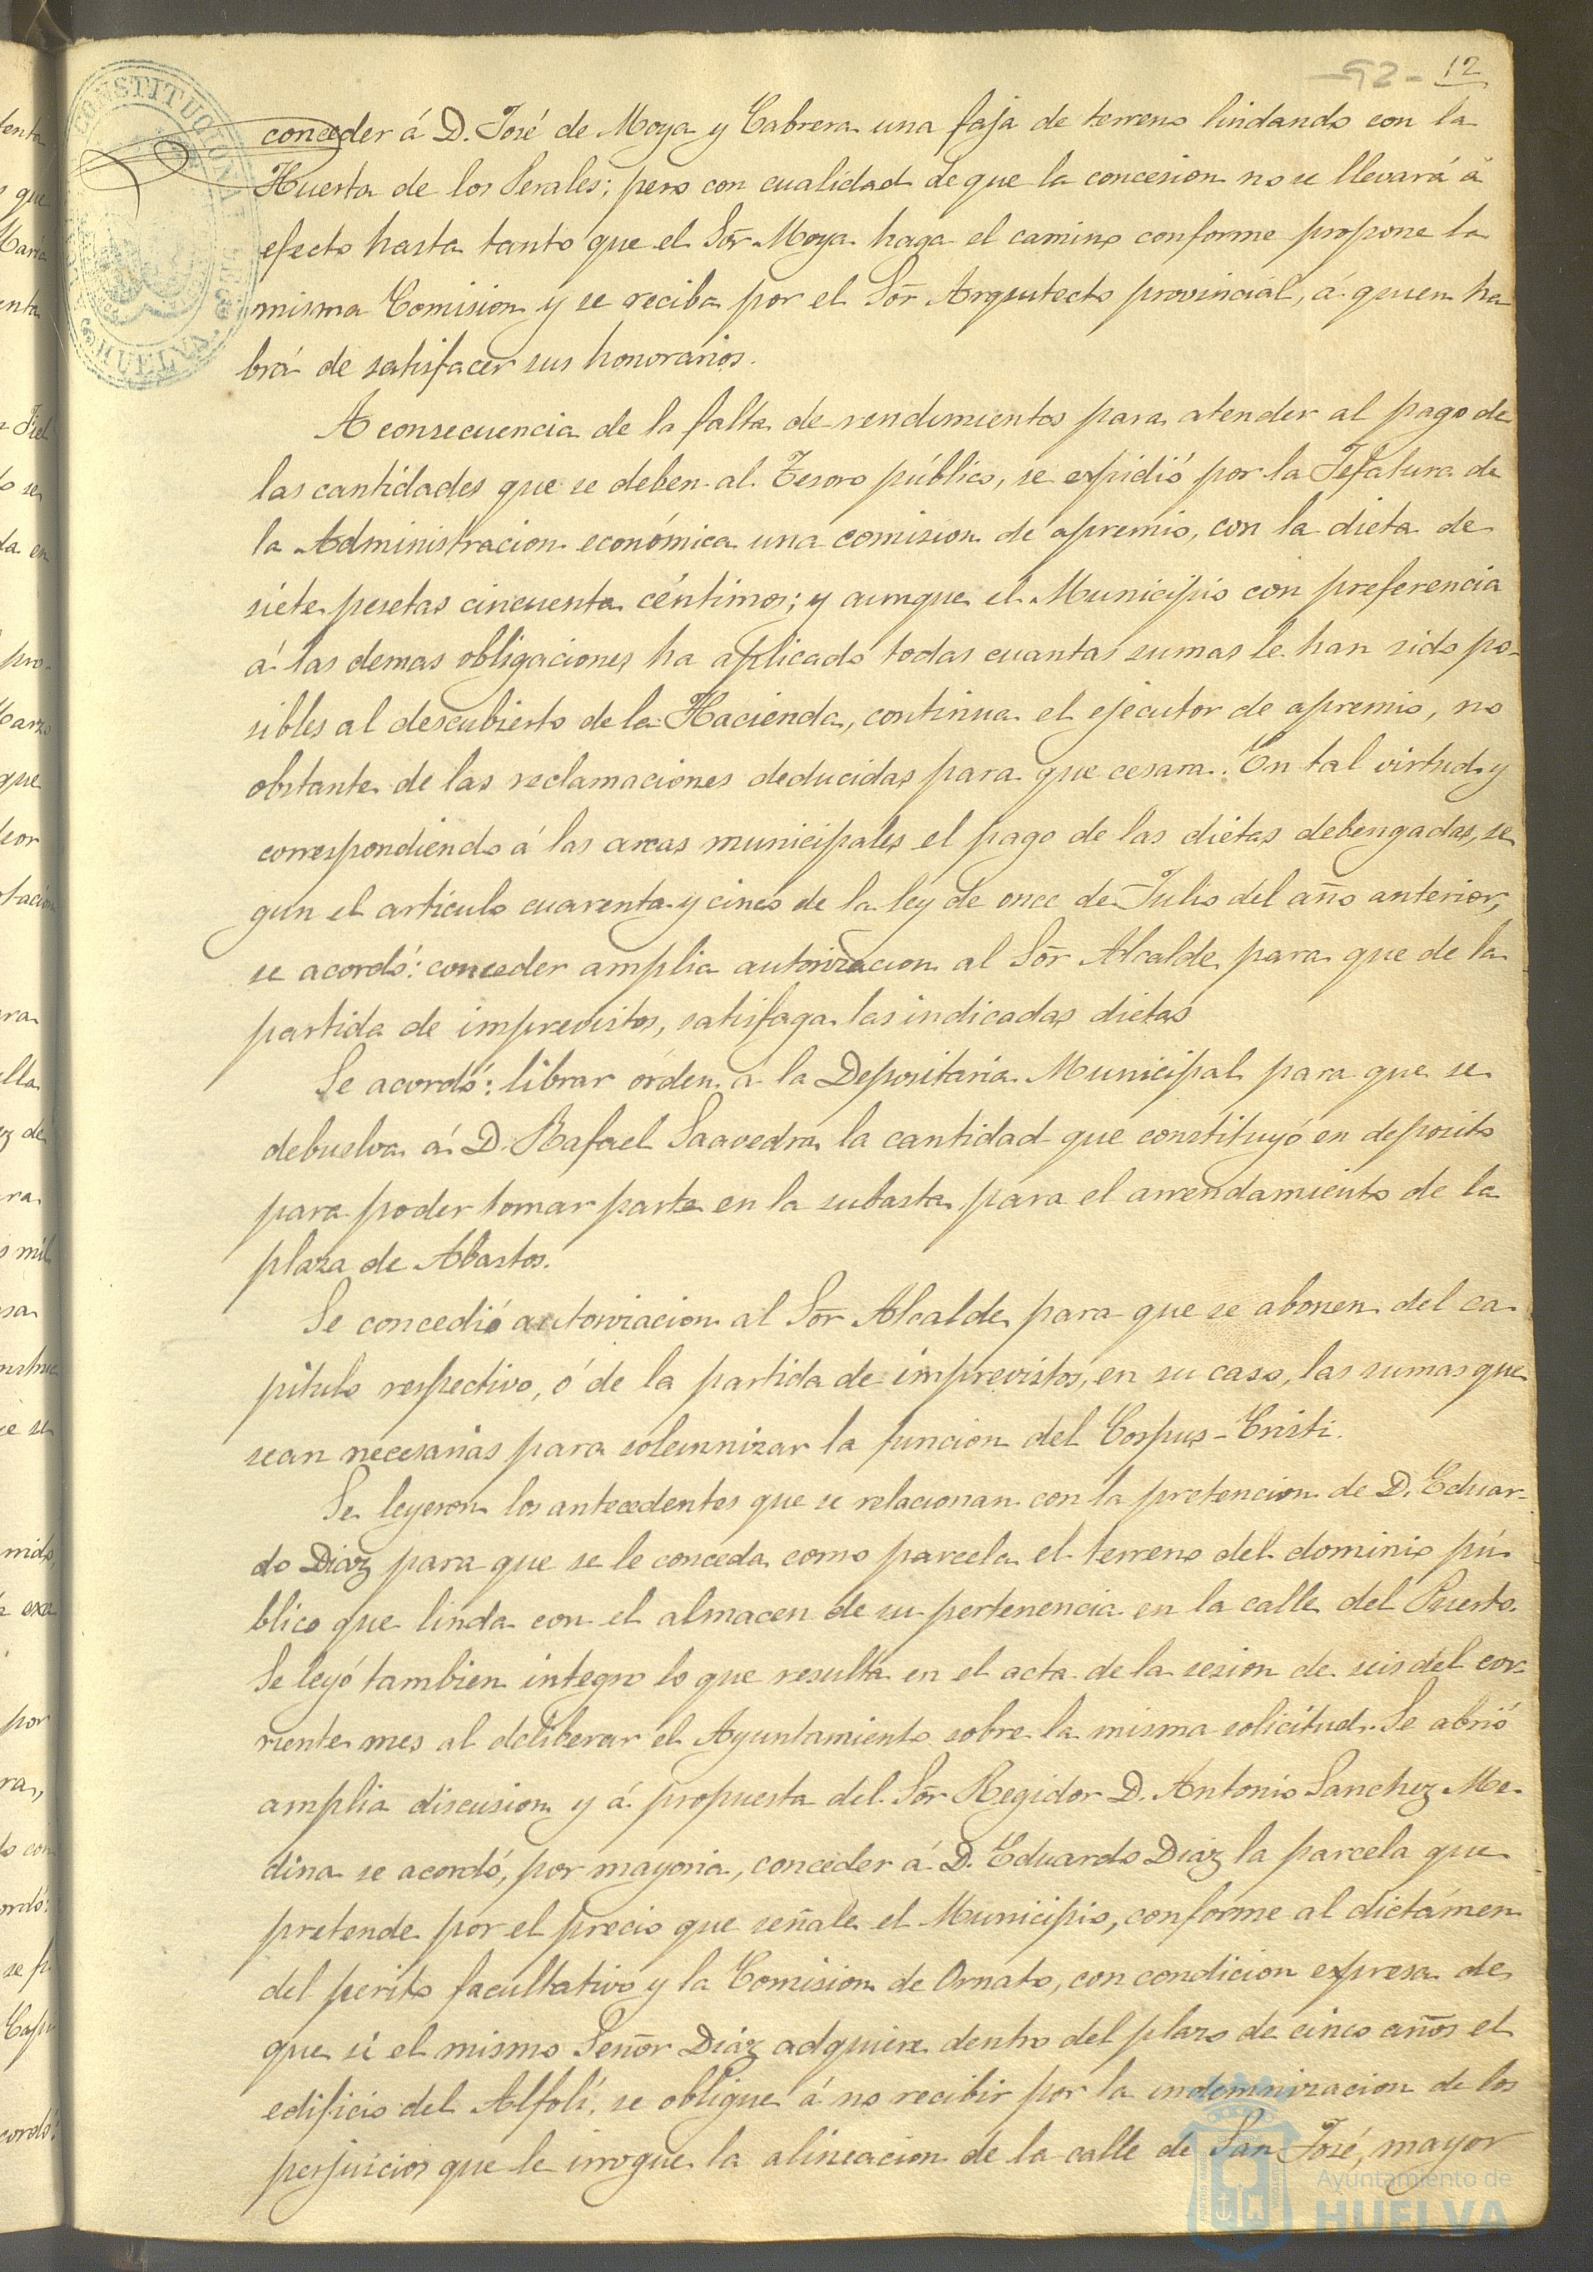 -92- 12
conceder á D. José de Moya y Cabrera una faja de terreno lindando con la
Huerta de los Perales; pero con cualidad de que la concesion no se llevará á
efecto hasta tanto que el Sor. Moya haga el camino conforme propone la
misma Comision y se reciba por el Sor. Arquitecto provincial, á quien ha
brá de satisfacer sus honorarios.
A consecuencia de la falta de rendimientos para atender al pago de
las cantidades que se deben al Tesoro público, se expidió por la Jefatura de
la Administracion económica una comision de apremio, con la dieta de
siete pesetas cincuenta céntimos; y aunque el Municipio con preferencia
á las demas obligaciones ha aplicado todas cuantas sumas le han sido po-
sibles al descubierto de la Hacienda, continua el ejecutor de apremio, no
obstante de las reclamaciones deducidas para que cesara. En tal virtud y
correspondiendo á las arcas municipales el pago de las dietas debengadas, se
gun el artículo cuarenta y cinco de la ley de once de Julio del año anterior,
se acordó: conceder amplia autorizacion al Sor. Alcalde para que de la
partida de imprevistos, satisfaga las indicadas dietas
Se acordó: librar órden á la Depositaria Municipal para que se
debuelva á D. Rafael Saavedra la cantidad que constituyó en deposito
para poder tomar parte en la subasta para el arrendamiento de la
plaza de Abastos.
Se concedió autorizacion al Sor. Alcalde para que se abonen del ca
pitulo respectivo, ó de la partida de imprevistos, en su caso, las sumas que
sean necesarias para solemnizar la funcion del Corpus-Cristi.
Se leyeron los antecedentes que se relacionan con la pretencion de D. Eduar-
do Diaz para que se le conceda como parcela el terreno del dominio pú-
blico que linda con el almacen de su pertenencia en la calle del Puerto.
Se leyó tambien integro lo que resulta en el acta de la sesion de seis del cor-
riente mes al deliberar el Ayuntamiento sobre la misma solicitud. Se abrió
amplia discusion y á propuesta del Sor. Regidor D. Antonio Sanchez Me-
dina se acordó, por mayoria, conceder á D. Eduardo Diaz la parcela que
pretende por el precio que señale el Municipio, conforme al dictámen
del perito facultativo y la Comision de Ornato, con condicion expresa de
que si el mismo Señor Diaz adquiere dentro del plazo de cinco años el
edificio del Alfolí, se obligue á no recibir por la indemnizacion de los
perjuicios que le irrogue la alineacion de la calle de San José, mayor
CONSTITUCIONAL DE HUELVA
Ayuntamiento de
HUELVA